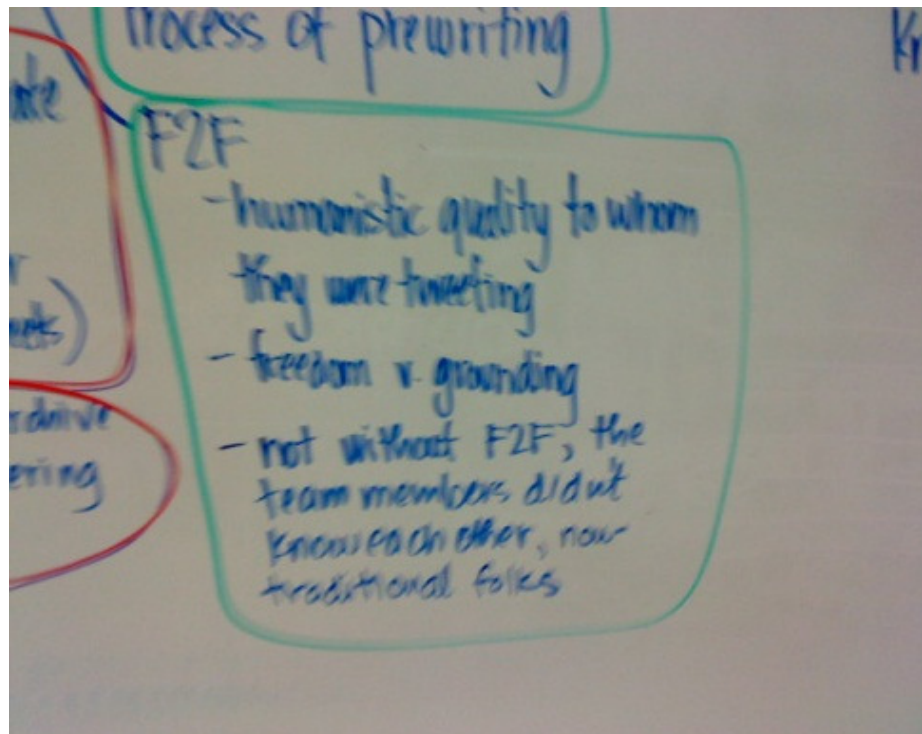 Process of prewriting
F2F
- humanistic quality to whom
they were tweeting
- freedom v. grounding
- not without F2F, the
team members didn't
know each other, non-
traditional folks
ering
Kn